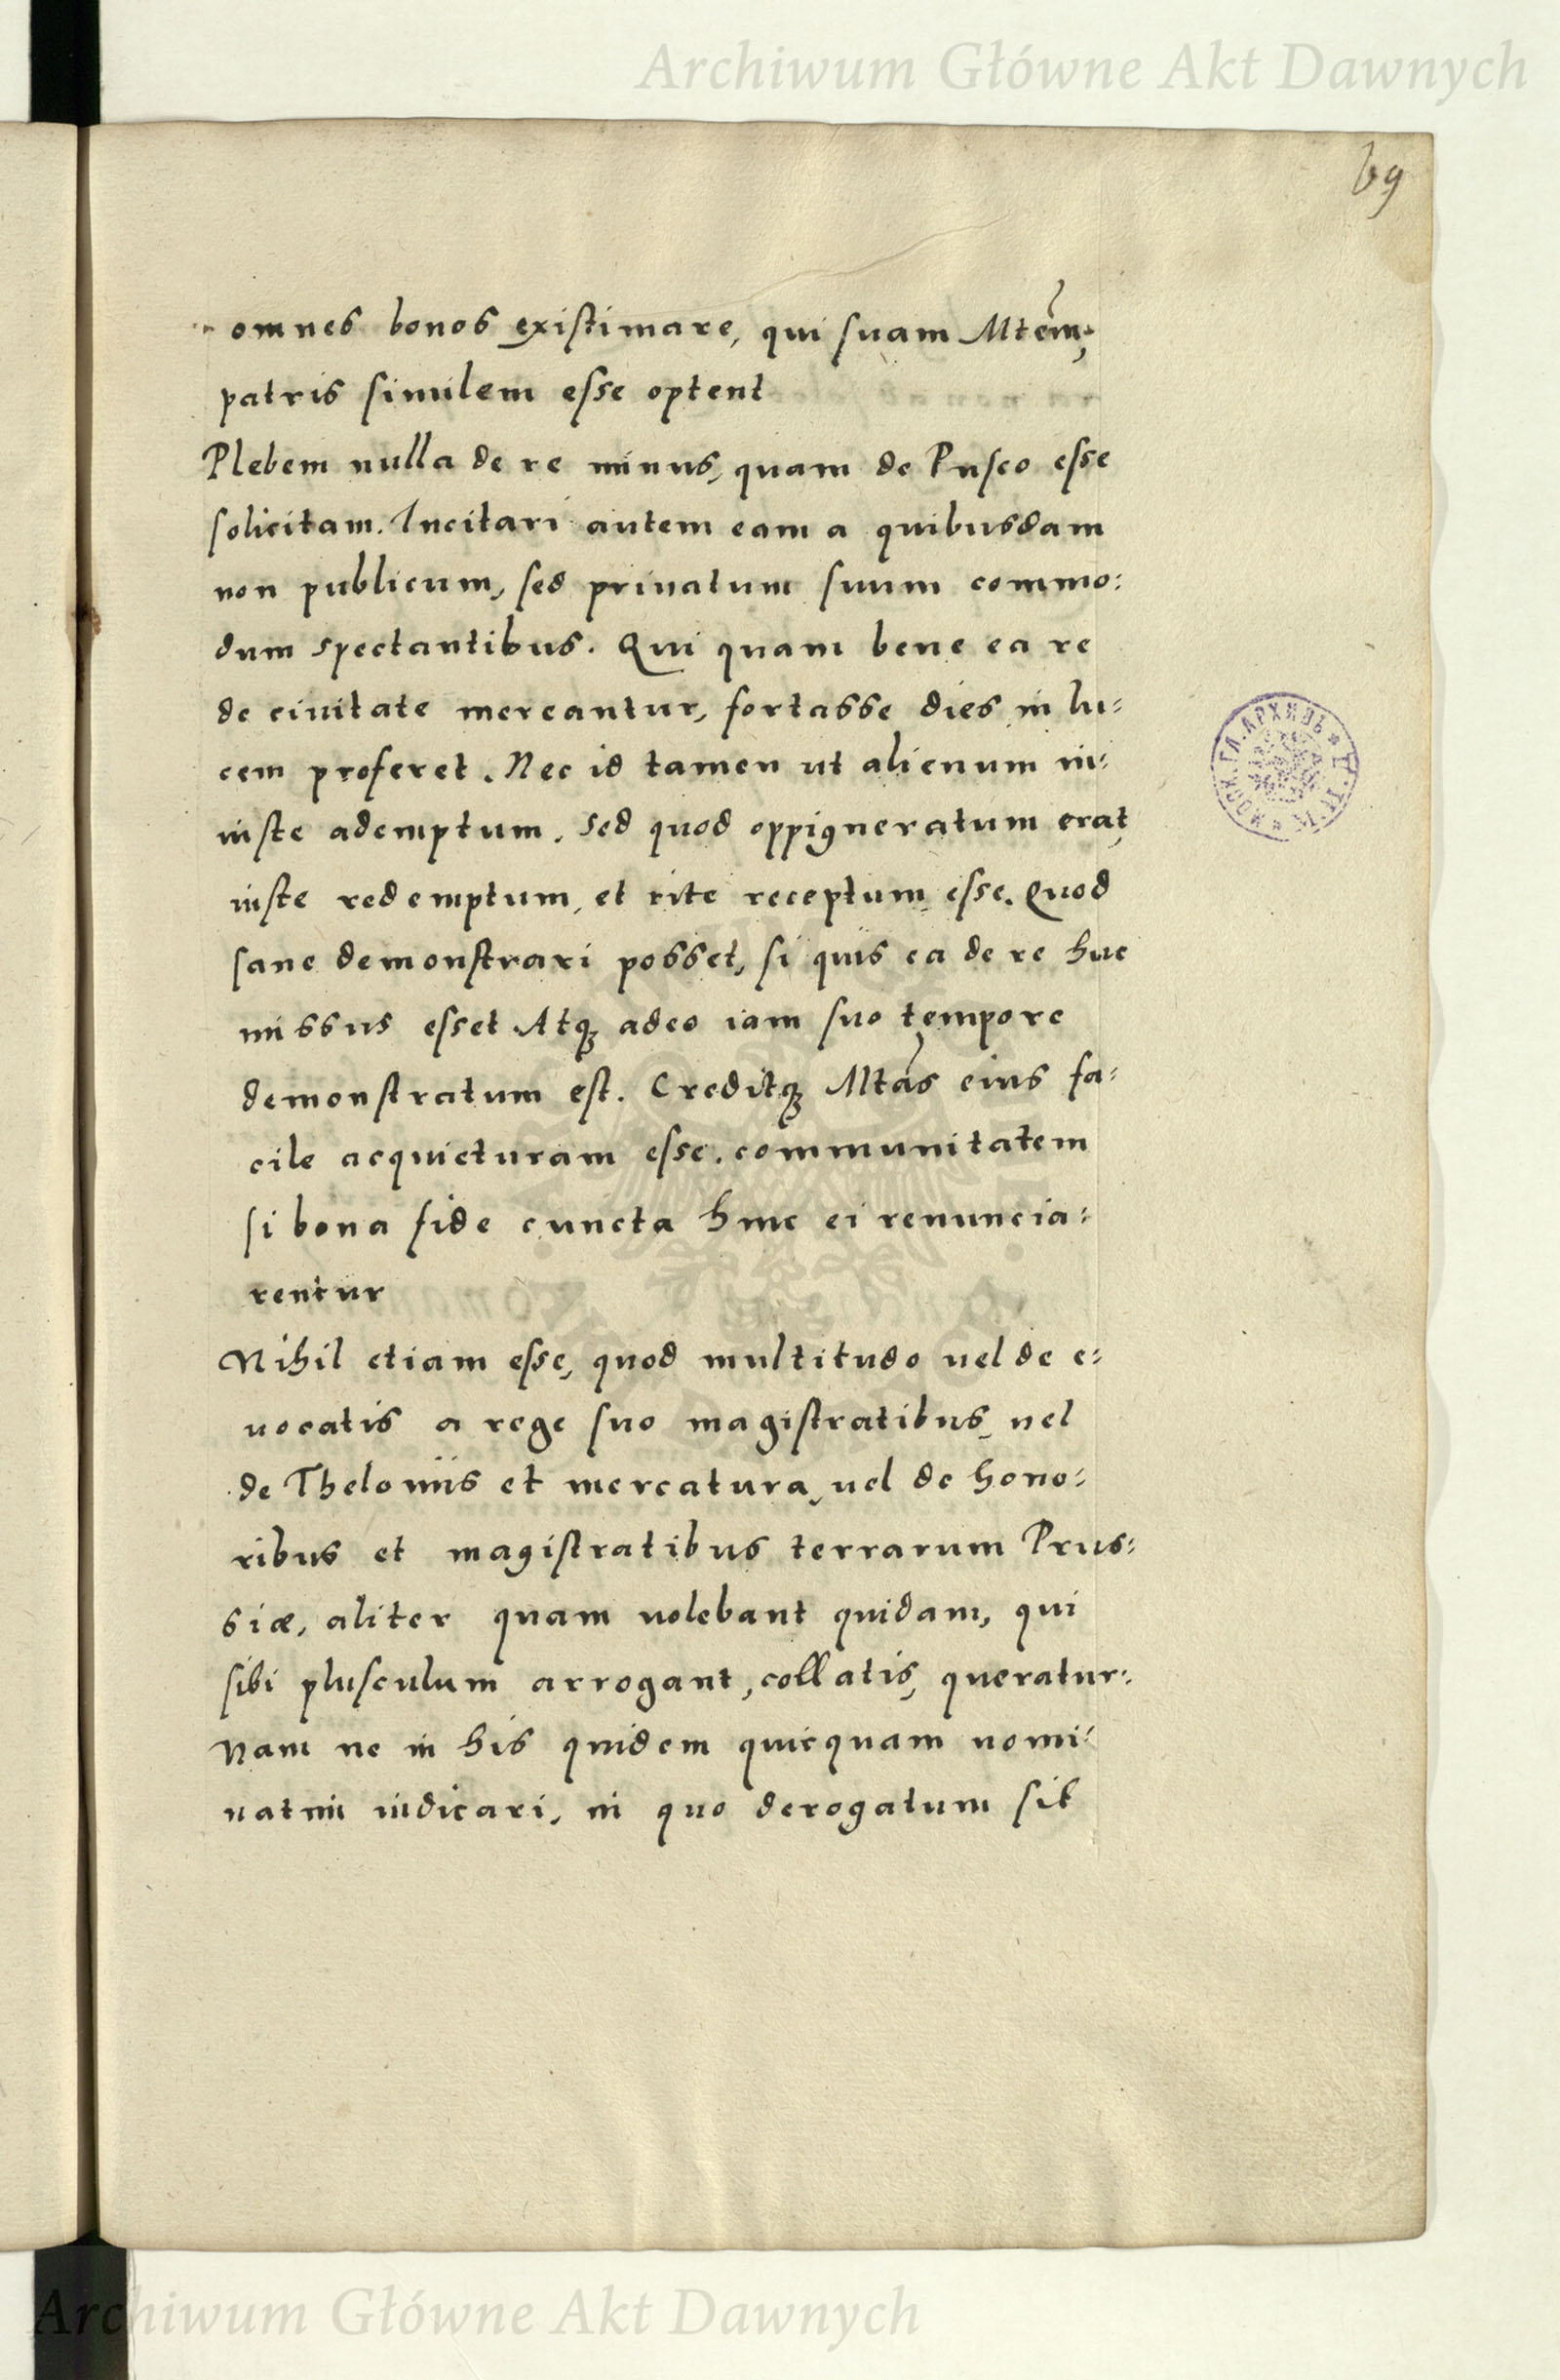 Archiwum Główne Akt Dawnych
69
omnes bonos existimare, qui suam Mtem,
patris similem esse optent
Plebem nulla de re minus, quam de Pusco esse
solicitam. Incitari autem eam a quibusdam
non publicum, sed priuatum suum commo:
dum spectantibus. Qui quam bene ea re
de ciuitate mereantur, fortasse dies in lu:
cem proferet. Nec id tamen ut alienum in:
iuste ademptum, sed quod oppigneratum erat,
iuste redemptum, et rite receptum esse. Quod
sane demonstrari posset, si quis ea de re huc
missus esset Atq; adeo iam suo tempore
demonstratum est. Creditq; Mtas eius fa:
cile acquieturam esse. communitatem
si bona fide cuncta hinc ei renuncia:
rentur
Nihil etiam esse, quod multitudo uel de e:
uocatis a rege suo magistratibus, uel
de Theloniis et mercatura, uel de hono:
ribus et magistratibus terrarum Prus:
siæ, aliter quam uolebant quidam, qui
sibi plusculum arrogant, collatis, queratur:
Nam ne in his quidem quicquam nomi:
natim indicari, in quo derogatum sit
МОСК. ГЛ. АРХИВЪ
Archiwum Główne Akt Dawnych